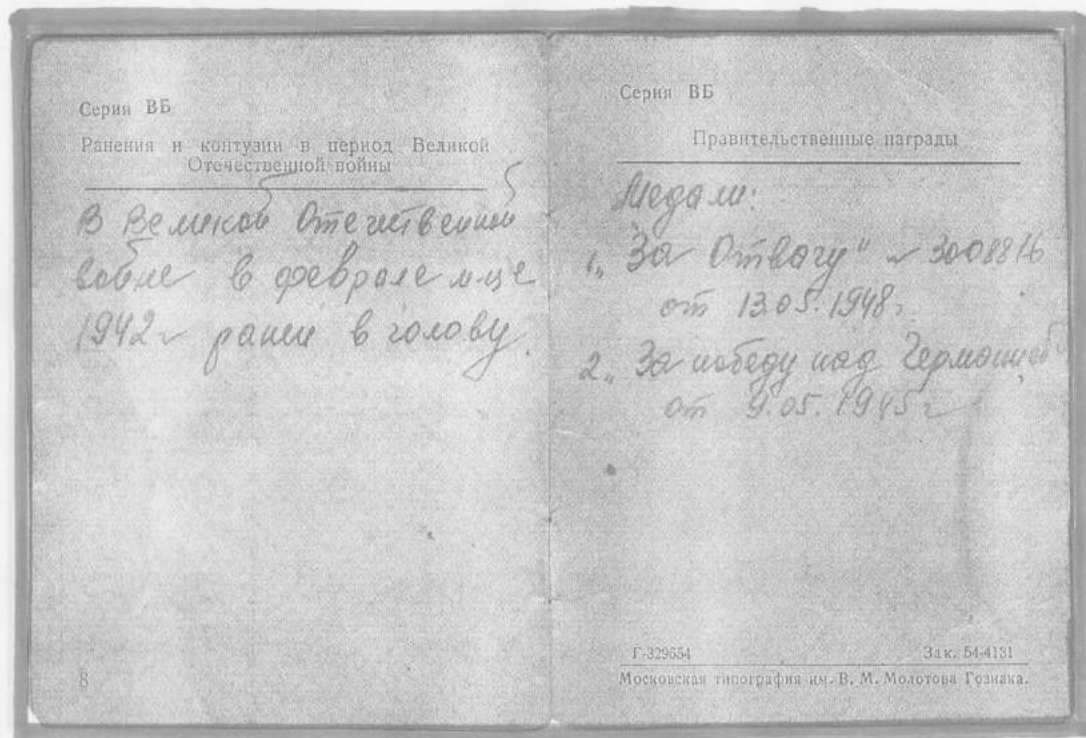 Серия ВБ
Ранения и контузии в период Великой
Отечественной войны
В Великой Отечественной
войне в феврале м-це
1942 г ранен в голову.
8
Серия ВБ
Правительственные награды
Медали:
1. „За Отвагу" № 3008816
от 13.05.1948 г.
2. „За победу над Германией
от 9.05.1945 г
Г-329654 Зак. 54-4131
Московская типография им. В. М. Молотова Гознака.